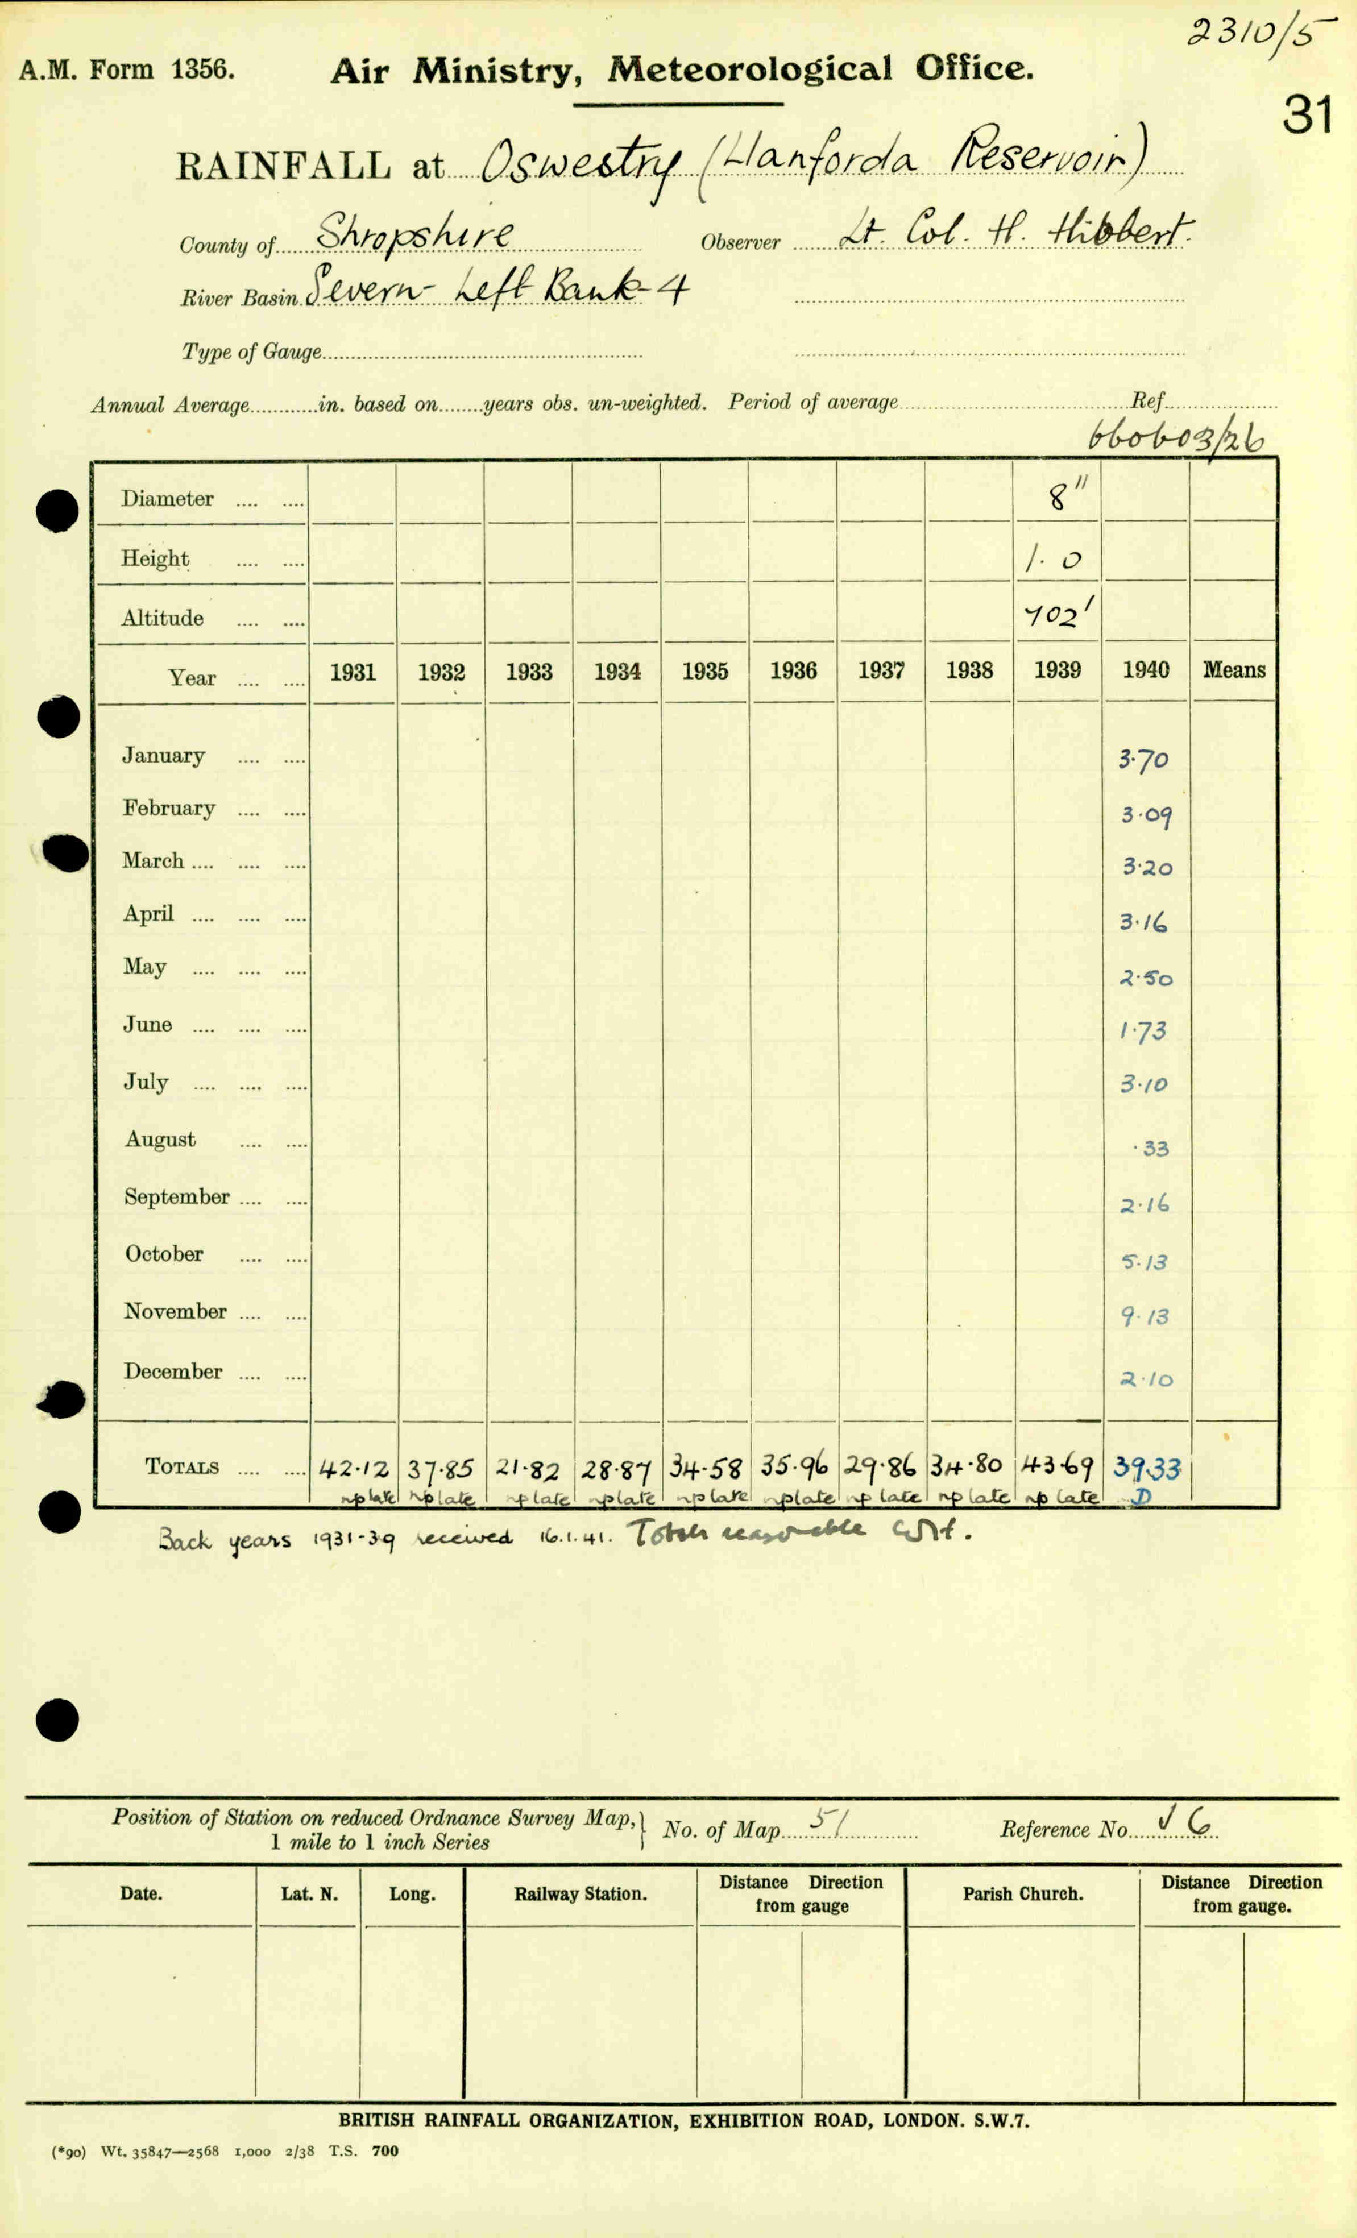 2310/5
A.M. Form 1356. Air Ministry, Meteorological Office.
31
RAINFALL at Oswestry (Llanforda Reservoir)
County of Shropshire Observer Lt. Col. H. Hibbert.
River Basin Severn - Left Bank - 4
Type of Gauge
Annual Average in. based on years obs. un-weighted. Period of average Ref.
660603/26
Diameter 8"
Height 1.0
Altitude 702'
Year 1931 1932 1933 1934 1935 1936 1937 1938 1939 1940 Means
January 3.70
February 3.09
March 3.20
April 3.16
May 2.50
June 1.73
July 3.10
August .33
September 2.16
October 5.13
November 9.13
December 2.10
TOTALS 42.12 37.85 21.82 28.87 34.58 35.96 29.86 34.80 43.69 39.33
np late np late np late np late np late np late np late np late np late D
Back years 1931-39 received 16.1.41. Totals reasonable
Position of Station on reduced Ordnance Survey Map, No. of Map 51 Reference No. J 6
1 mile to 1 inch Series
Date. Lat. N. Long. Railway Station. Distance Direction from gauge Parish Church. Distance Direction from gauge.
BRITISH RAINFALL ORGANIZATION, EXHIBITION ROAD, LONDON. S.W.7.
(*90) Wt. 35847—2568 1,000 2/38 T.S. 700